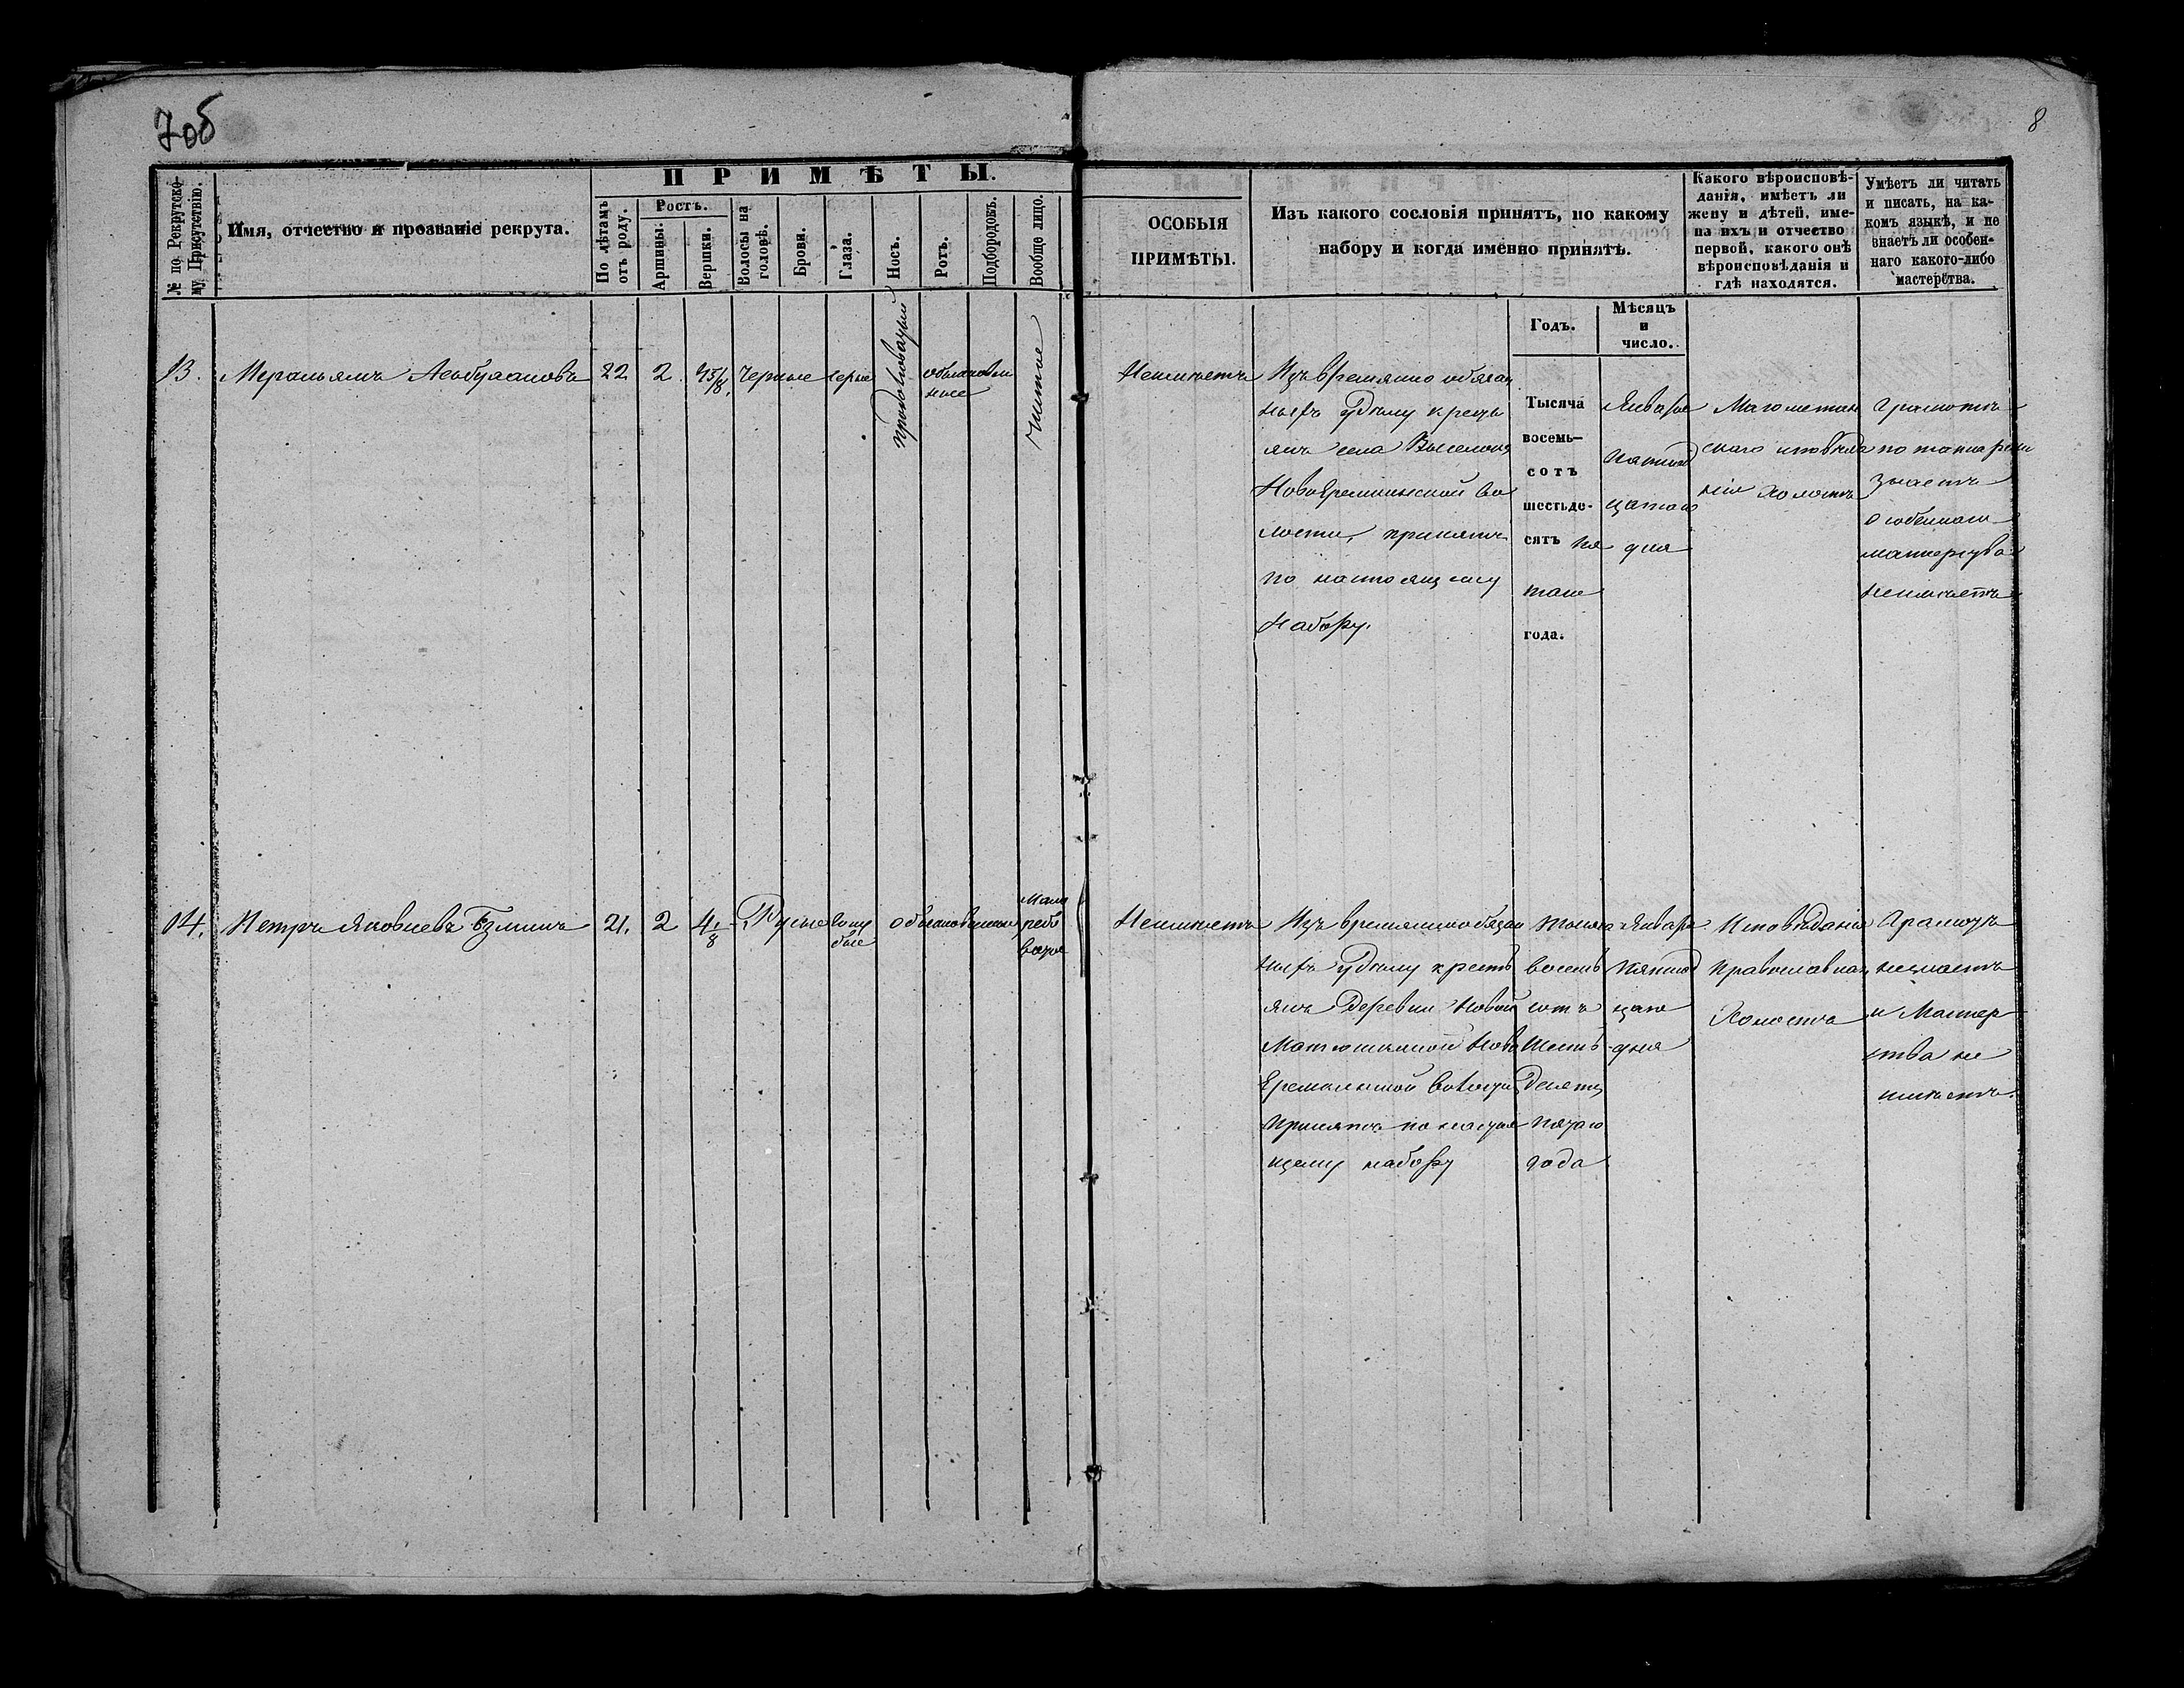 7 об
8
№ по Рекрутско-
му Присутствію.
Имя, отчество и прозваніе рекрута.
ПРИМѢТЫ.
По лѣтамъ
отъ роду.
Ростъ.
Аршины.
Вершки.
Волосы на
головѣ.
Брови.
Глаза.
Носъ.
Ротъ.
Подбородокъ.
Вообще лицо.
ОСОБЫЯ
ПРИМѢТЫ.
Изъ какого сословія принятъ, по какому
набору и когда именно принятъ.
Годъ.
Мѣсяцъ
и
число.
Какого вѣроисповѣ-
данія, имѣетъ ли
жену и дѣтей, име-
на ихъ и отчество
первой, какого онѣ
вѣроисповѣданія и
гдѣ находятся.
Умѣетъ ли читать
и писать, на ка-
комъ языкѣ, и не
знаетъ ли особен-
наго какого-либо
мастерства.
13.
22
2
4 5/8
Черные
серые
обыкновен
ные
чистое
Неимѣетъ
Изъ временно обязан
ныхъ Удѣлу кресть
янъ села
во
лости, принятъ
по настоящему
набору.
Тысяча
восемь-
сотъ
шестьде-
сятъ пя
таго
года.
Января
пятнад
цатаго
дня
Магометан
скаго исповѣда
нія холостъ
Грамотѣ
по татарски
знаетъ
особеннаго
мастерства
неимѣетъ
14.
Петръ Яковлевъ
21.
2
4 1/8
Русые
голу
бые
обыкновенные
мало
рябо
ватое
Неимѣетъ
Изъ временнообязан
ныхъ Удѣлу кресть
янъ деревни Новой
Матюшкиной Ново
Еремкинской волости
принятъ по настоя
щему набору
тысяча
восемь
сотъ
шесть
десятъ
пятаго
года
Января
пятнад
цато
дня
Исповѣданія
православнаго
Холостъ
Грамотѣ
незнаетъ
и Мастер
ства не
имѣетъ.